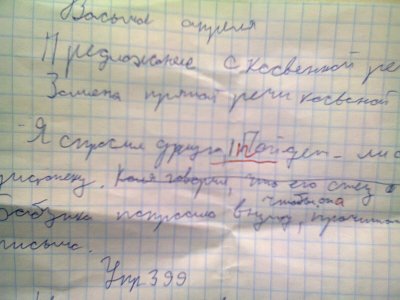 Восьмое апреля
Предложение с косвенной ре
Замена прямой речи косвеной
- Я спросил друга, Пойдет - ли с
дискотеку. Коля говорил, что его отец
чтобы она
Бабушка попросила внучку, прочитал
письмо.
Упр 399